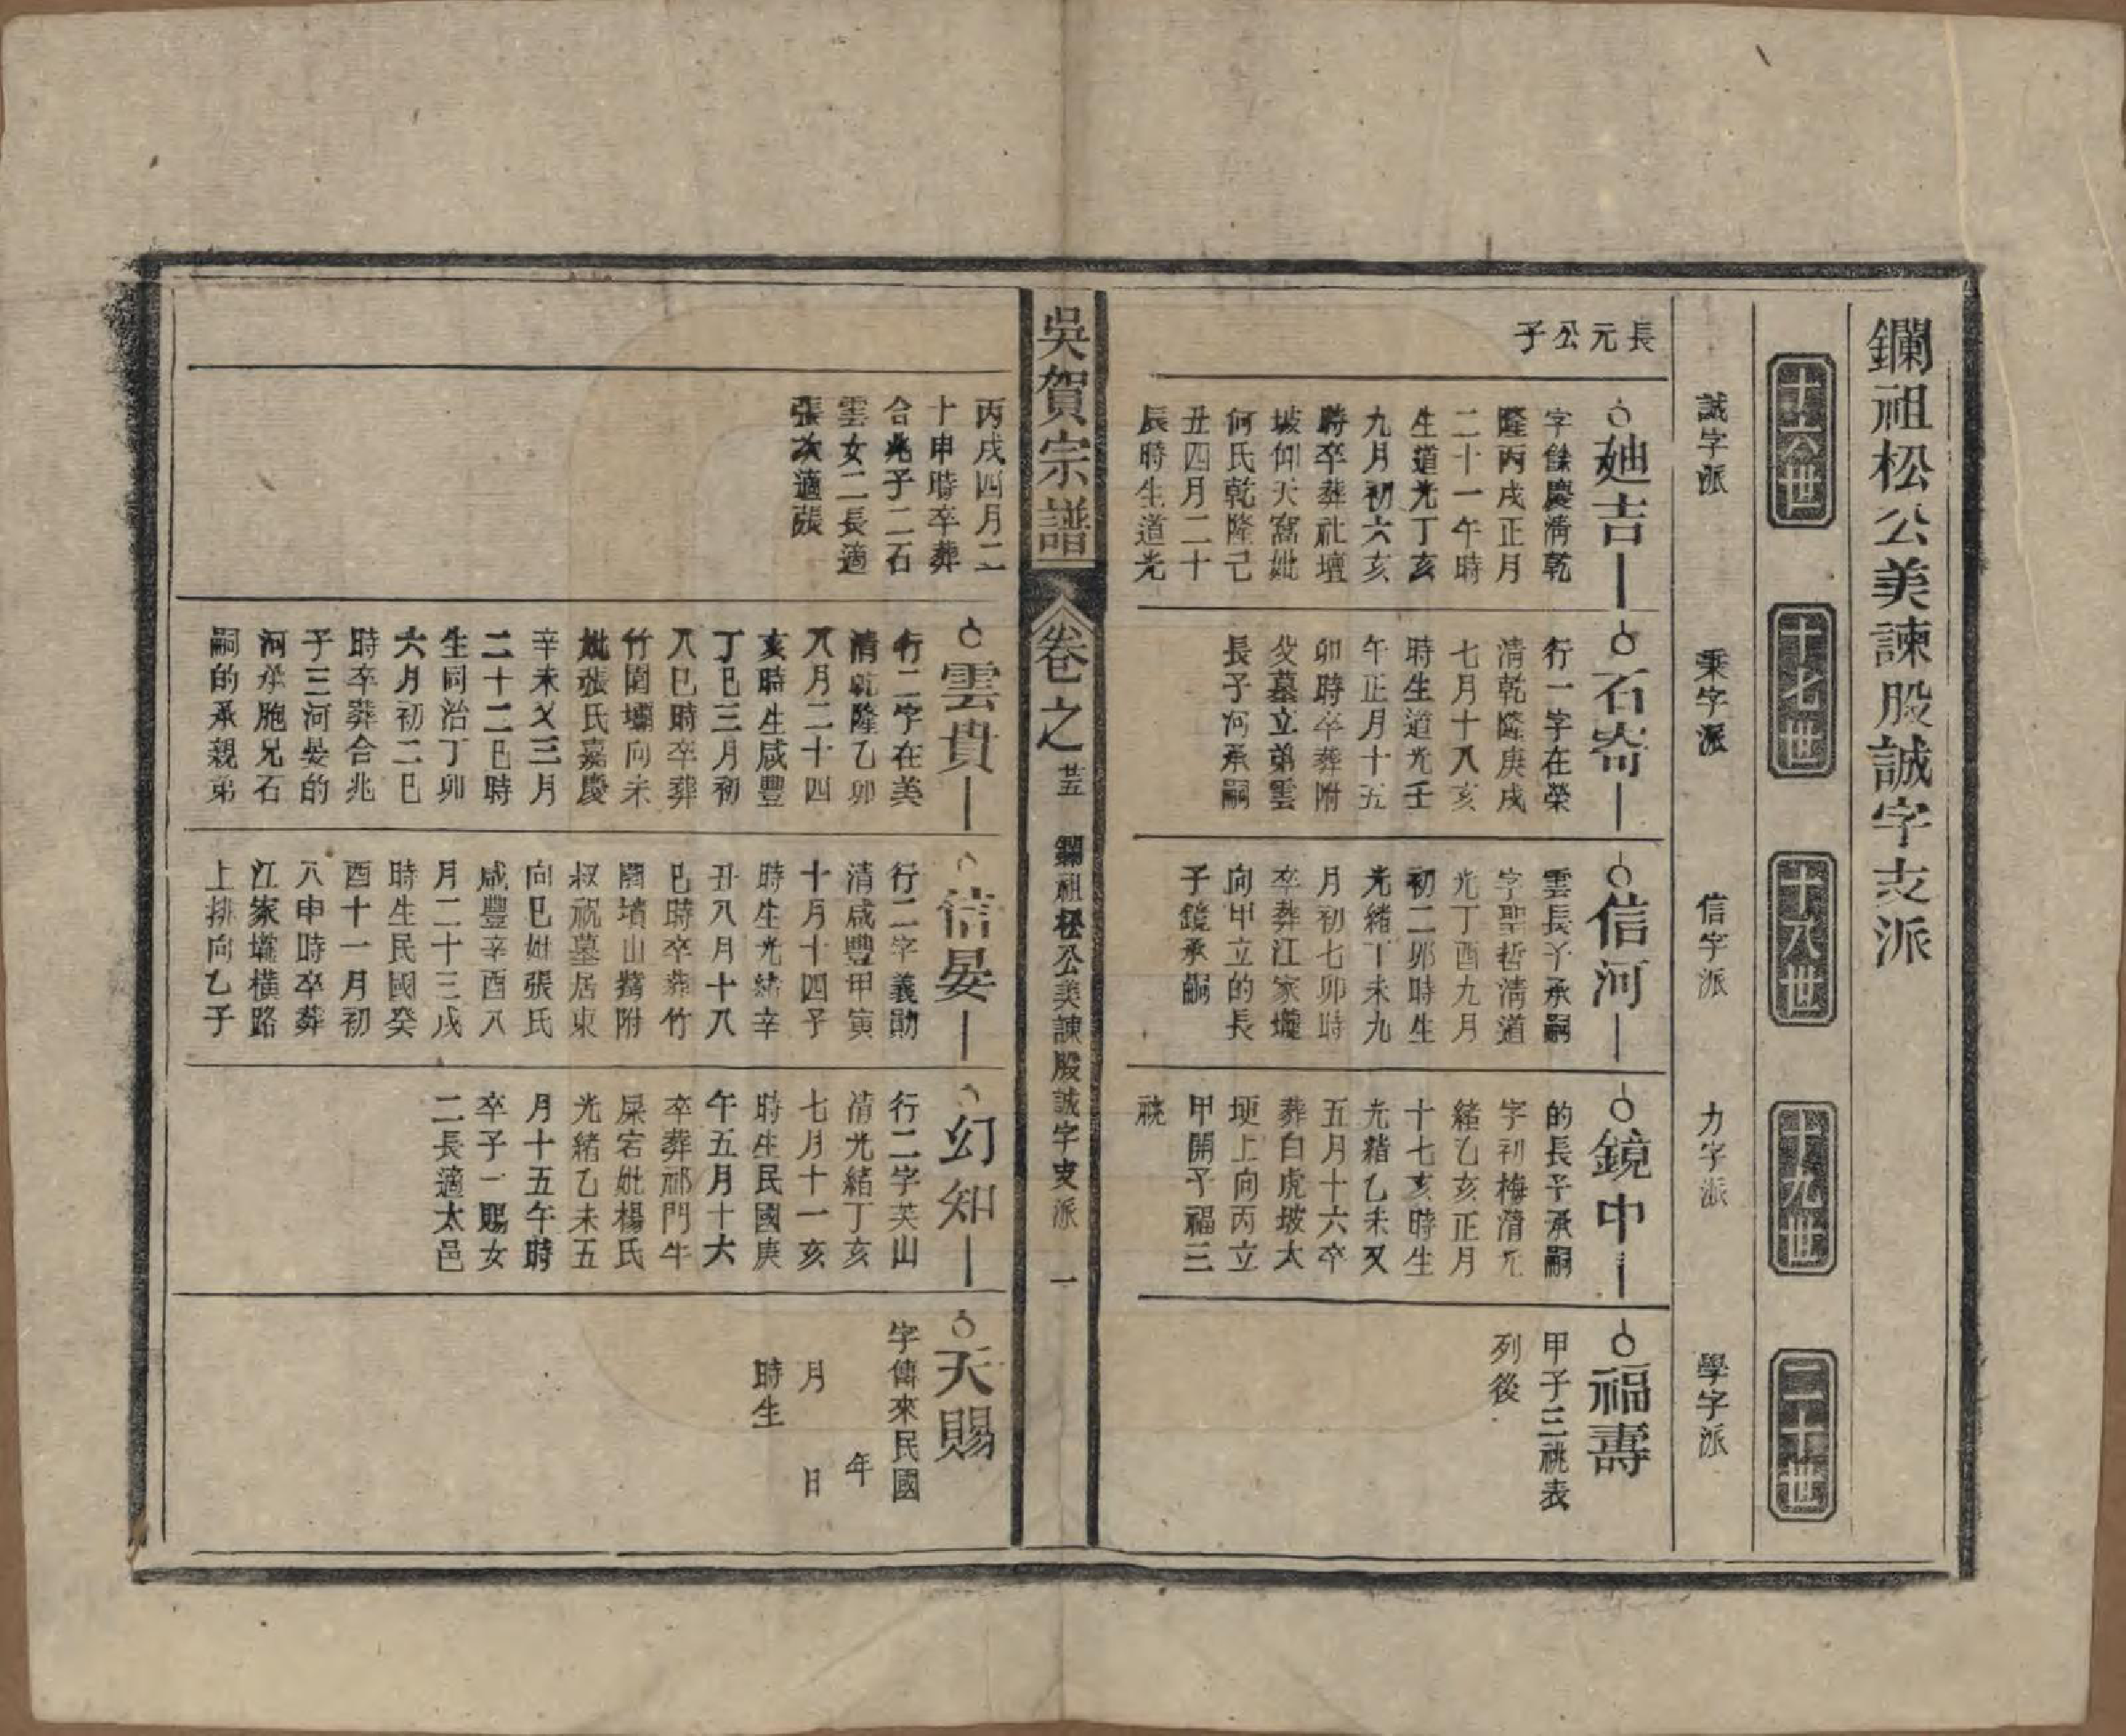 鑭祖松公美諫股誠字支派
十六世
十七世
十八世
十九世
二十世
誠字派
秉字派
信字派
力字派
學字派
長元公子
廸吉
字餘慶清乾
隆丙戌正月
二十一午時
生道光丁亥
九月初六亥
時卒葬社壇
坡仰天窩妣
何氏乾隆己
丑四月二十
辰時生道光
石崙
行一字在榮
清乾隆庚戌
七月十八亥
時生道光壬
午正月十五
卯時卒葬附
父墓立弟雲
長子河承嗣
信河
雲長子承嗣
字聖哲清道
光丁酉九月
初二卯時生
光緒丁未九
月初七卯時
卒葬江家壠
向甲立的長
子鏡承嗣
鏡中
的長子承嗣
字初梅清光
緒乙亥正月
十七亥時生
光緒乙未又
五月十六卒
葬白虎坡大
埂上向丙立
甲開子福三
祧
福壽
甲子三祧表
列後
吳賀宗譜
卷之 廿五 鑭祖松公美諫股誠字支派 一
丙戌四月二
十申時卒葬
合兆子二石
雲女二長適
張次適張
雲貴
行二字在美
清乾隆乙卯
八月二十四
亥時生咸豐
丁巳三月初
八巳時卒葬
竹園壩向未
妣張氏嘉慶
辛未又三月
二十二巳時
生同治丁卯
六月初二巳
時卒葬合兆
子三河晏的
河承胞兄石
嗣的承親弟
信晏
行二字義勛
清咸豐甲寅
十月十四子
時生光緒辛
丑八月十八
巳時卒葬竹
園墳山嘴附
叔祝墓居東
向巳妣張氏
咸豐辛酉八
月二十三戌
時生民國癸
酉十一月初
八申時卒葬
江家壠橫路
上排向乙子
幻知
行二字英山
清光緒丁亥
七月十一亥
時生民國庚
午五月十六
卒葬祁門牛
屎宕妣楊氏
光緒乙未五
月十五午時
卒子一賜女
二長適太邑
天賜
字傳來民國
年
月 日
時生